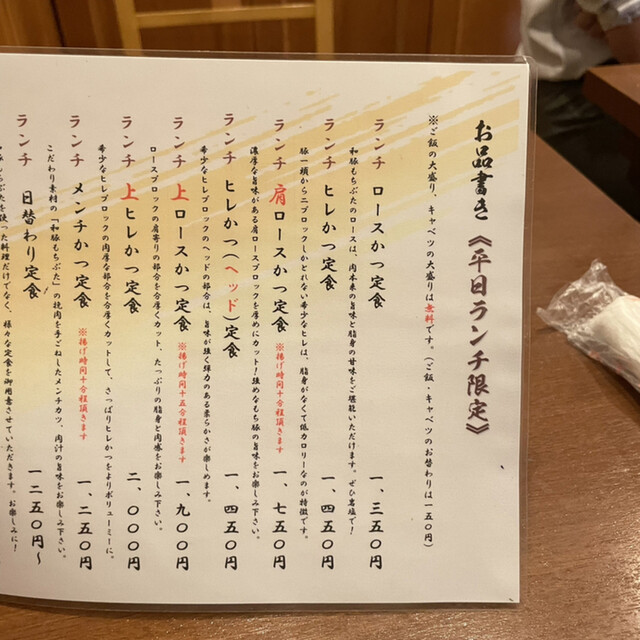 お品書き《平日ランチ限定》
※ご飯の大盛り、キャベツの大盛りは無料です。(ご飯・キャベツのお替わりは一五〇円)
ランチ ロースかつ定食 一、三五〇円
和豚もちぶたのロースは、肉本来の旨味と脂身の甘味をご堪能いただけます。ぜひ岩塩で!
ランチ ヒレかつ定食 一、四五〇円
豚一頭から二ブロックしかとれない希少なヒレは、脂身がなくて低カロリーなのが特徴です。
ランチ 肩ロースかつ定食 ※揚げ時間十分程頂きます 一、七五〇円
濃厚な旨味がある肩ロースブロックを厚めにカット!強めなもち豚の旨味をお楽しみ下さい。
ランチ ヒレかつ(ヘッド)定食 一、四五〇円
希少なヒレブロックのヘッドの部分は、旨味が強く弾力のある柔らかさが楽しめます。
ランチ 上ロースかつ定食 ※揚げ時間十五分程頂きます 一、九〇〇円
ロースブロックの肩寄りの部分を分厚くカット、たっぷりの脂身と肉感をお楽しみ下さい。
ランチ 上ヒレかつ定食 二、〇〇〇円
希少なヒレブロックの肉厚な部分を分厚くカットして、さっぱりヒレかつをよりボリューミーに。
ランチ メンチかつ定食 ※揚げ時間十分程頂きます 一、二五〇円
こだわり素材の「和豚もちぶた」の挽肉を手ごねしたメンチカツ、肉汁の旨味をお楽しみ下さい。
ランチ 日替わり定食 一二五〇円〜
和豚もちぶたを使った料理だけでなく、様々な定食を御用意させていただきます。お楽しみに!